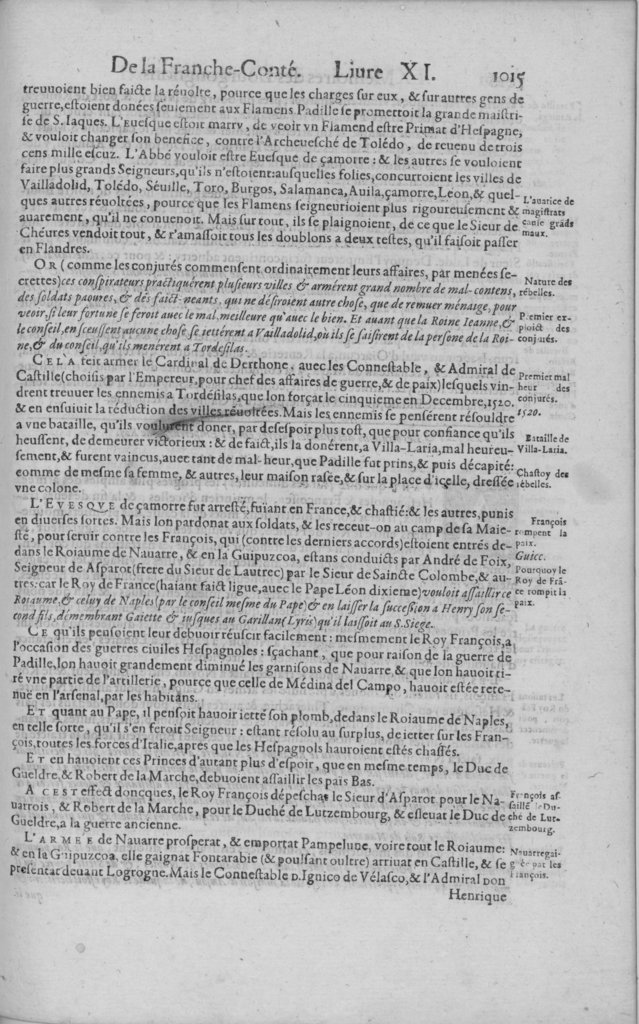 De la Franche-Conté. Liure XI. 1015
treuuoient bien faicte la réuolte, pource que les charges sur eux, & sur autres gens de
guerre, estoient donées seulement aux Flamens Padille se promettoit la grande maistri-
se de S. Iaques. L'Euesque estoit marry, de veoir vn Flamend estre Primat d'Hespagne,
& vouloit changer son benefice, contre l'Archeuesché de Tolédo, de reuenu de trois
cens mille escuz. L'Abbé vouloit estre Euesque de çamorre: & les autres se vouloient
faire plus grands Seigneurs, qu'ils n'estoient: ausquelles folies, concurroient les villes de
Vailladolid, Tolédo, Séuille, Toro, Burgos, Salamanca, Auila, çamorre, Léon, & quel-
ques autres réuoltées, pource que les Flamens seigneurioient plus rigoureusement &
auarement, qu'il ne conuenoit. Mais sur tout, ils se plaignoient, de ce que le Sieur de
Chéures vendoit tout, & r'amassoit tous les doublons a deux testes, qu'il faisoit passer
en Flandres.
L'auarice de
magistrats
cause grāds
maux.
OR (comme les conjurés commensent ordinairement leurs affaires, par menées se-
crettes) ces conspirateurs practiquérent plusiers villes & armérent grand nombre de mal-contens,
des soldats paoures, & des faict-neants, qui ne désiroient autre chose, que de remuer ménaige, pour
veoir, si leur fortune se feroit auec le mal, meilleure qu'auec le bien. Et auant que la Roine Ieanne, &
le conseil, en sceussent aucune chose, se iettérent a Vailladolid, ou ils se saisirent de la persone de la Roi-
ne, & du conseil, qu'ils menérent a Tordesilas.
Nature des
rébelles.
Premier ex-
ploict des
conjurés.
CELA feit armer le Cardinal de Derthone, auec les Connestable, & Admiral de
Castille (choisis par l'Empereur, pour chef des affaires de guerre, & de paix) lesquels vin-
drent treuuer les ennemis a Tordésilas, que lon forçat le cinquieme en Decembre, 1520.
& en ensuiuit la réduction des villes réuoltées. Mais les ennemis se pensérent résouldre
a vne bataille, qu'ils voulurent doner, par desespoir plus tost, que pour confiance qu'ils
heussent, de demeurer victorieux: & de faict, ils la donérent, a Villa-Laria, mal heureu-
sement, & furent vaincus, auec tant de mal-heur, que Padille fut prins, & puis décapité:
comme de mesme sa femme, & autres, leur maison rasée, & sur la place d'icelle, dressée
vne colone.
Premier mal
heur des
conjurés.
1520.
Bataille de
Villa-Laria.
Chastoy des
rébelles.
L'EVESQVE de çamorre fut arresté, fuiant en France, & chastié: & les autres, punis
en diuerses sortes. Mais lon pardonat aux soldats, & les receut-on au camp de sa Maie-
sté, pour seruir contre les François, qui (contre les derniers accords) estoient entrés de-
dans le Roiaume de Nauarre, & en la Guipuzcoa, estans conduicts par André de Foix,
Seigneur de Asparot (frere du Sieur de Lautrec) par le Sieur de Saincte Colombe, & au-
tres: car le Roy de France (haiant faict ligue, auec le Pape Léon dixieme) vouloit assaillir ce
Roiaume, & celuy de Naples (par le conseil mesme du Pape) & en laisser la succession a Henry son se-
cond fils, démembrant Gaiette & iusques au Garillan (Lyris) qu'il laissoit au S. Siege.
François
rompent la
paix.
Guicc.
Pourquoy le
Roy de Frā-
ce rompit la
paix.
CE qu'ils pensoient leur debuoir réuscir facilement: mesmement le Roy François, a
l'occasion des guerres ciuiles Hespagnoles: sçachant, que pour raison de la guerre de
Padille, lon hauoit grandement diminué les garnisons de Nauarre, & que lon hauoit ti-
ré vne partie de l'artillerie, pource que celle de Médina del Campo, hauoit estée rete-
nuë en l'arsenal, par les habitans.
ET quant au Pape, il pensoit hauoir ietté son plomb, dedans le Roiaume de Naples,
en telle sorte, qu'il s'en feroit Seigneur: estant résolu au surplus, de ietter sur les Fran-
çois, toutes les forces d'Italie, apres que les Hespagnols hauroient estés chassés.
ET en hauoient ces Princes d'autant plus d'espoir, que en mesme temps, le Duc de
Gueldre, & Robert de la Marche, debuoient assaillir les païs Bas.
A CEST effect doncques, le Roy François dépeschat le Sieur d'Asparot pour le Na-
uarrois, & Robert de la Marche, pour le Duché de Lutzembourg, & esleuat le Duc de
Gueldre, a la guerre ancienne.
François as-
saille le Du-
ché de Lut-
zembourg.
L'ARMEE de Nauarre prosperat, & emportat Pampelune, voire tout le Roiaume:
& en la Guipuzcoa, elle gaignat Fontarabie (& poussant oultre) arriuat en Castille, & se
presentat deuant Logrogne. Mais le Connestable D. Ignico de Vélasco, & l'Admiral DON
Nauarre gai-
gnée par les
François.
Henrique